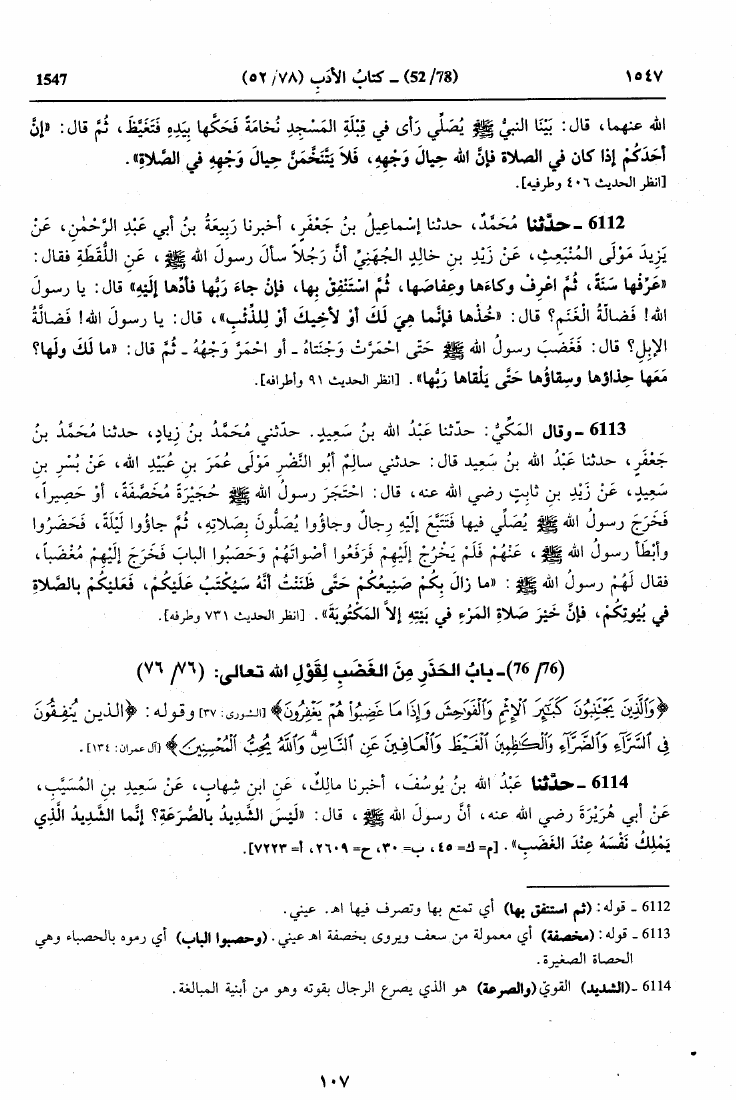 ١٥٤٧ (52/78) ـ كتابُ الأدَبِ (٥٢/٧٨) 1547
الله عنهما، قال: بَيْنَا النبيُّ ﷺ يُصَلِّي رَأى في قِبْلَةِ المَسْجِدِ نُخامَةً فَحَكَّها بِيَدِهِ فَتَغَيَّظَ، ثُمَّ قال: «إنَّ
أحَدَكُمْ إذا كان في الصلاة فإنَّ الله حِيالَ وَجْهِهِ، فَلاَ يَتَنَخَّمَنَّ حِيالَ وَجْهِهِ في الصَّلاةِ».
[انظر الحديث ٤٠٦ وطرفيه].
6112 ـ حدَّثنا مُحَمَّدٌ، حدثنا إسْماعِيلُ بنُ جَعْفَرٍ، أخبرنا رَبِيعَةُ بنُ أبي عَبْدِ الرَّحْمٰنِ، عَنْ
يَزِيدَ مَوْلَى المُنْبَعِثِ، عَنْ زَيْدِ بنِ خالِدٍ الجُهَنِيِّ أنَّ رَجُلاً سألَ رسولَ الله ﷺ، عَنِ اللُّقَطَةِ فقال:
«عَرِّفْها سَنَةً، ثُمَّ اعْرِفْ وِكاءَها وعِفاصَها، ثُمَّ اسْتَنْفِقْ بِها، فإنْ جاءَ رَبُّها فأدِّها إلَيْهِ» قال: يا رسولَ
الله! فَضالَّةُ الْغَنَمِ؟ قال: «خُذْها فإنَّما هِيَ لَكَ أوْ لأخِيكَ أوْ لِلذِّئْبِ»، قال: يا رسولَ الله! فَضالَّةُ
الإبِلِ؟ قال: فَغَضِبَ رسولُ الله ﷺ حَتَّى احْمَرَّتْ وَجْنَتاهُ ـ أو احْمَرَّ وَجْهُهُ ـ ثُمَّ قال: «ما لَكَ ولَها؟
مَعَها حِذاؤها وسِقاؤُها حَتَّى يَلْقاها رَبُّها». [انظر الحديث ٩١ وأطرافه].
6113 ـ وقال المَكِّيُّ: حدّثنا عَبْدُ الله بنُ سَعِيدٍ. حدّثني مُحَمَّدُ بنُ زِيادٍ، حدثنا مُحَمَّدُ بنُ
جَعْفَرٍ، حدثنا عَبْدُ الله بنُ سَعِيد قال: حدثني سالِمٌ أبُو النَّضْرِ مَوْلَى عُمَرَ بنِ عُبَيْدِ الله، عَنْ بُسْرِ بنِ
سَعِيدٍ، عَنْ زَيْدِ بنِ ثابِتٍ رضي الله عنه، قال: احْتَجَرَ رسولُ الله ﷺ حُجَيْرَةً مُخَصَّفَةً، أوْ حَصِيراً،
فَخَرَجَ رسولُ الله ﷺ يُصَلِّي فيها فَتَتَبَّعَ إلَيْهِ رِجالٌ وجاؤوا يُصَلُّونَ بِصَلاتِهِ، ثُمَّ جاؤوا لَيْلَةً، فَحَضَرُوا
وأبْطَأ رسولُ الله ﷺ، عَنْهُمْ فَلَمْ يَخْرُجْ إلَيْهِمْ فَرَفَعُوا أصْواتَهُمْ وَحَصَبُوا البابَ فَخَرَجَ إلَيْهِمْ مُغْضَباً،
فقال لَهُمْ رسولُ الله ﷺ: «ما زالَ بِكُمْ صَنِيعُكُمْ حَتَّى ظَنَنْتُ أنَّهُ سَيُكْتَبُ عَلَيْكُمْ، فَعَلَيْكُمْ بالصَّلاةِ
في بُيُوتِكُمْ، فإنَّ خَيْرَ صَلاةِ المَرْءِ في بَيْتِهِ إلاَّ المَكْتُوبَةَ». [انظر الحديث ٧٣١ وطرفه].
(76/ ٧٦)ـ بابُ الحَذَرِ مِنَ الغَضَبِ لِقَوْلِ الله تعالى: (٧٦/ ٧٦)
﴿وَالَّذِينَ يَجْتَنِبُونَ كَبَائِرَ الْإِثْمِ وَالْفَوَاحِشَ وَإِذَا مَا غَضِبُوا هُمْ يَغْفِرُونَ﴾ [الشورى: ٣٧] وقوله: ﴿الذين يُنفِقُونَ
فِي السَّرَّاءِ وَالضَّرَّاءِ وَالْكَاظِمِينَ الْغَيْظَ وَالْعَافِينَ عَنِ النَّاسِ وَاللَّهُ يُحِبُّ الْمُحْسِنِينَ﴾ [آل عمران: ١٣٤].
6114 ـ حدَّثنا عَبْدُ الله بنُ يُوسُفَ، أخبرنا مالِكٌ، عَنِ ابنِ شِهابٍ، عَنْ سَعِيدِ بنِ المُسَيَّبِ،
عَنْ أبي هُرَيْرَةَ رضي الله عنه، أنَّ رسولَ الله ﷺ، قال: «لَيْسَ الشَّدِيدُ بالصُّرَعَةِ؟ إنَّما الشَّدِيدُ الَّذِي
يَمْلِكُ نَفْسَهُ عِنْدَ الغَضَبِ». [م= ك= ٤٥، ب= ٣٠، ح= ٢٦٠٩، أ= ٧٢٢٣].
6112 ـ قوله: (ثم استنفق بها) أي تمتع بها وتصرف فيها اهـ. عيني.
6113 ـ قوله: (مخصفة) أي معمولة من سعف ويروى بخصفة اهـ عيني. (وحصبوا الباب) أي رموه بالحصباء وهي
الحصاة الصغيرة.
6114 ـ(الشديد) القويّ (والصرعة) هو الذي يصرع الرجال بقوته وهو من أبنية المبالغة.
١٠٧